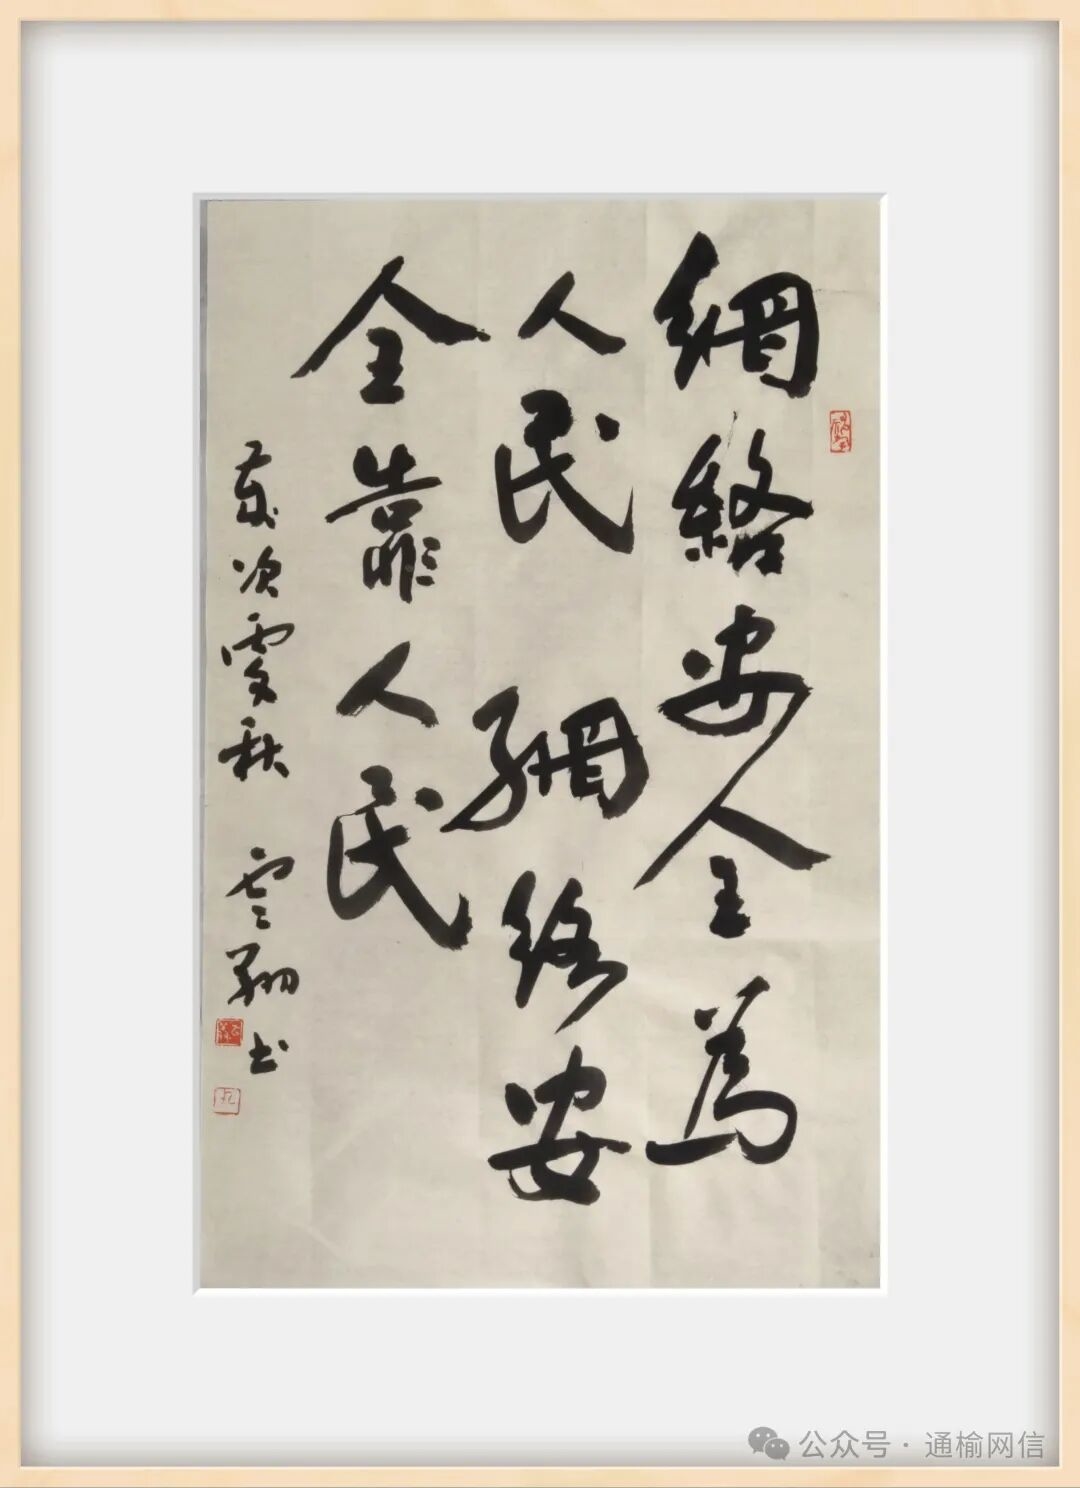 網絡安全為
人民網絡安
全靠人民
歲次秋 雲翔书
公众号 · 通榆网信